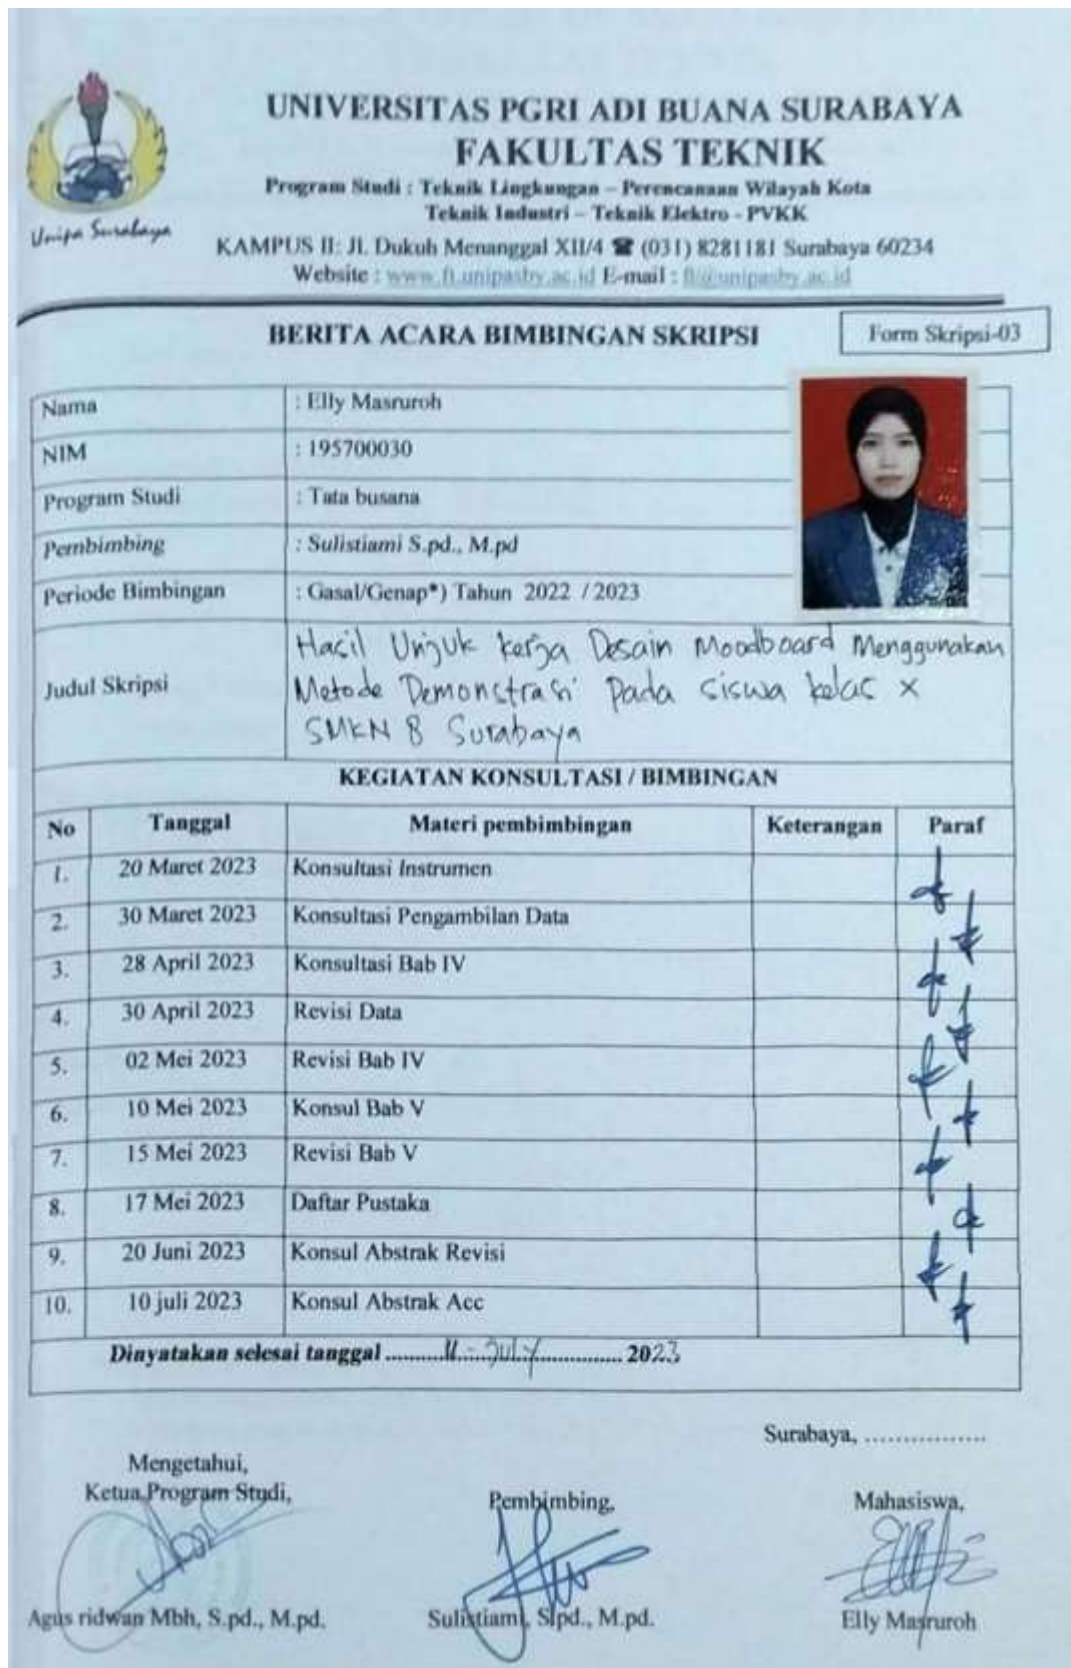 UNIVERSITAS PGRI ADI BUANA SURABAYA
FAKULTAS TEKNIK
Program Studi : Teknik Lingkungan – Perencanaan Wilayah Kota
Teknik Industri – Teknik Elektro - PVKK
Unipa Surabaya
KAMPUS II: Jl. Dukuh Menanggal XII/4 ☎ (031) 8281181 Surabaya 60234
Website : www.ft.unipasby.ac.id E-mail : ft@unipasby.ac.id
BERITA ACARA BIMBINGAN SKRIPSI
Form Skripsi-03
Nama : Elly Masruroh
NIM : 195700030
Program Studi : Tata busana
Pembimbing : Sulistiami S.pd., M.pd
Periode Bimbingan : Gasal/Genap*) Tahun 2022 / 2023
Judul Skripsi
Hasil Unjuk kerja Desain Moodboard Menggunakan
Metode Demonstrasi Pada siswa kelas x
SMKN 8 Surabaya
KEGIATAN KONSULTASI / BIMBINGAN
No Tanggal Materi pembimbingan Keterangan Paraf
1. 20 Maret 2023 Konsultasi Instrumen
2. 30 Maret 2023 Konsultasi Pengambilan Data
3. 28 April 2023 Konsultasi Bab IV
4. 30 April 2023 Revisi Data
5. 02 Mei 2023 Revisi Bab IV
6. 10 Mei 2023 Konsul Bab V
7. 15 Mei 2023 Revisi Bab V
8. 17 Mei 2023 Daftar Pustaka
9. 20 Juni 2023 Konsul Abstrak Revisi
10. 10 juli 2023 Konsul Abstrak Acc
Dinyatakan selesai tanggal ..........11 - July............... 2023
Surabaya, ................
Mengetahui,
Ketua Program Studi,
Pembimbing,
Mahasiswa,
Agus ridwan Mbh, S.pd., M.pd.
Sulistiami, S.pd., M.pd.
Elly Masruroh